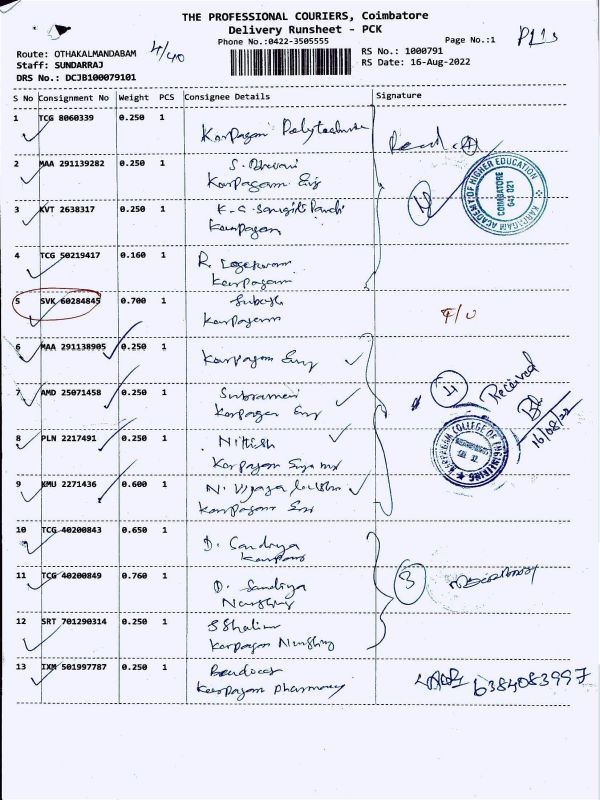 THE PROFESSIONAL COURIERS, Coimbatore
Delivery Runsheet - PCK
Phone No.:0422-3505555
Page No.:1
4/40
Route: OTHAKALMANDABAM
RS No.: 1000791
Staff: SUNDARRAJ
RS Date: 16-Aug-2022
DRS No.: DCJB100079101
S No Consignment No Weight PCS Consignee Details Signature
1 TCG 8060339 0.250 1 Karpagam Polytechnic
2 MAA 291139282 0.250 1 S.
Karpagam Eng
KARPAGAM ACADEMY OF HIGHER EDUCATION
COIMBATORE
641 021
3 KVT 2638317 0.250 1
Karpagam
4 TCG 50219417 0.160 1 R.
Karpagam
5 SVK 60284845 0.700 1 Subash
Karpagam
F/O
6 MAA 291138905 0.250 1 Karpagam Eng
7 AMD 25071458 0.250 1 Subramani
Karpagam Eng
4
Received
16/08/22
KARPAGAM COLLEGE OF ENGINEERING
8 PLN 2217491 0.250 1 Nithish
Karpagam
9 KMU 2271436 0.600 1 N. Vijaya
Karpagam Eng
10 TCG 40200843 0.650 1 D. Sandiya
11 TCG 40200849 0.760 1 D. Sandiya
Nursing
3
12 SRT 701290314 0.250 1 S Shalini
Karpagam Nursing
13 IXM 501997787 0.250 1
Karpagam pharmacy
6384083997